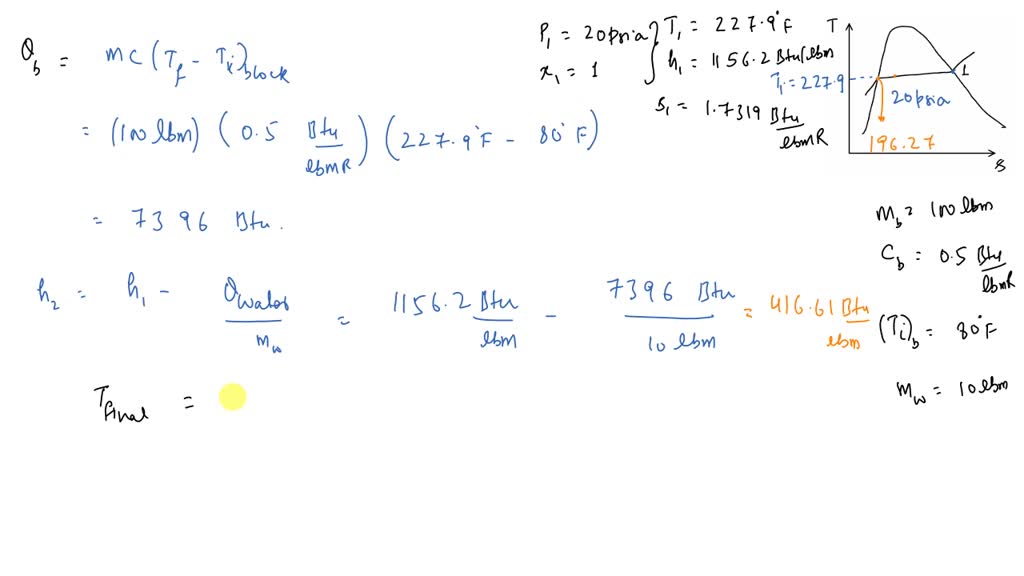 Q_b = mc(T_f - T_i)_block
= (100 lbm) (0.5 Btu/lbmR) (227.9°F - 80°F)
= 7396 Btu.
h_2 = h_1 - Q_water/m_w = 1156.2 Btu/lbm - 7396 Btu/10 lbm = 416.61 Btu/lbm
T_final =
P_1 = 20psia } T_1 = 227.9°F
x_1 = 1 } h_1 = 1156.2 Btu/lbm
s_1 = 1.7319 Btu/lbmR
T
T_1 = 227.9
1
20psia
196.27
s
m_b = 100 lbm
C_b = 0.5 Btu/lbmR
(T_i)_b = 80°F
m_w = 10 lbm